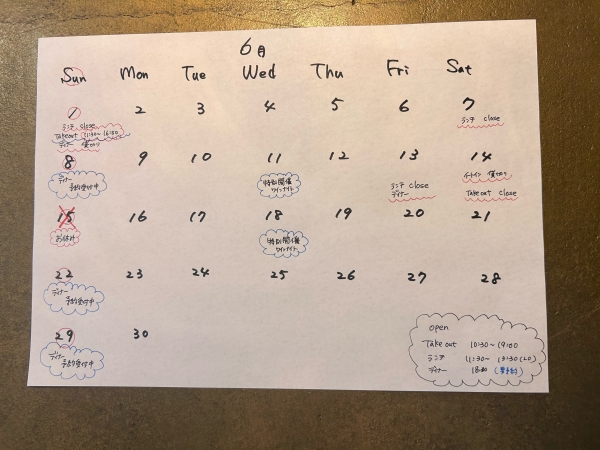 6月
Sun Mon Tue Wed Thu Fri Sat
1 2 3 4 5 6 7
ランチ close
Takeout 11:30~16:00
ディナー 貸切り
ランチ close
8 9 10 11 12 13 14
ディナー
予約受付中
特別開催
ワインナイト
ランチ close
ディナー
イートイン 貸切り
Takeout close
15 16 17 18 19 20 21
お休み
特別開催
ワインナイト
22 23 24 25 26 27 28
ディナー
予約受付中
29 30
ディナー
予約受付中
open
Takeout 10:30~19:00
ランチ 11:30~13:30(LO)
ディナー 18:00 (要予約)